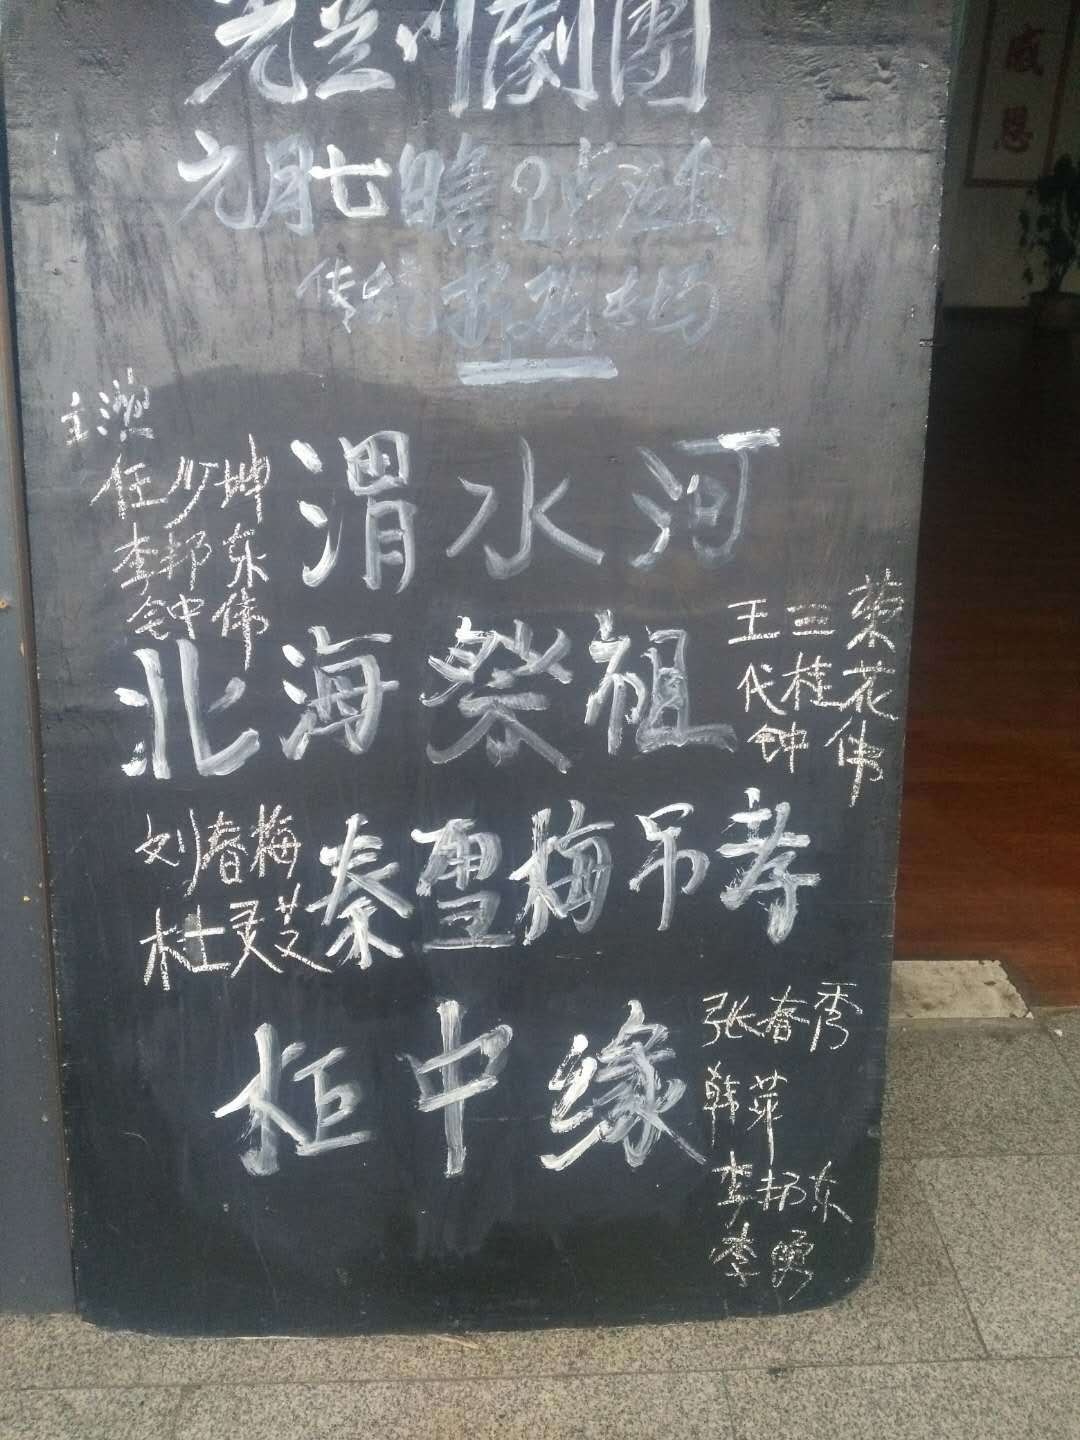 川劇團
元月七日
传统折戏专场
主演
任少坤
李邦东
钟伟
渭水河
北海祭祖
王三荣
代桂花
钟伟
刘春梅
杜灵芝
秦雪梅吊孝
柜中缘
张春秀
韩萍
李邦东
李勇
感恩